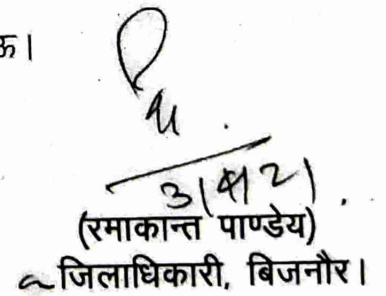 ऊ।
(रमाकान्त पाण्डेय)
जिलाधिकारी, बिजनौर।